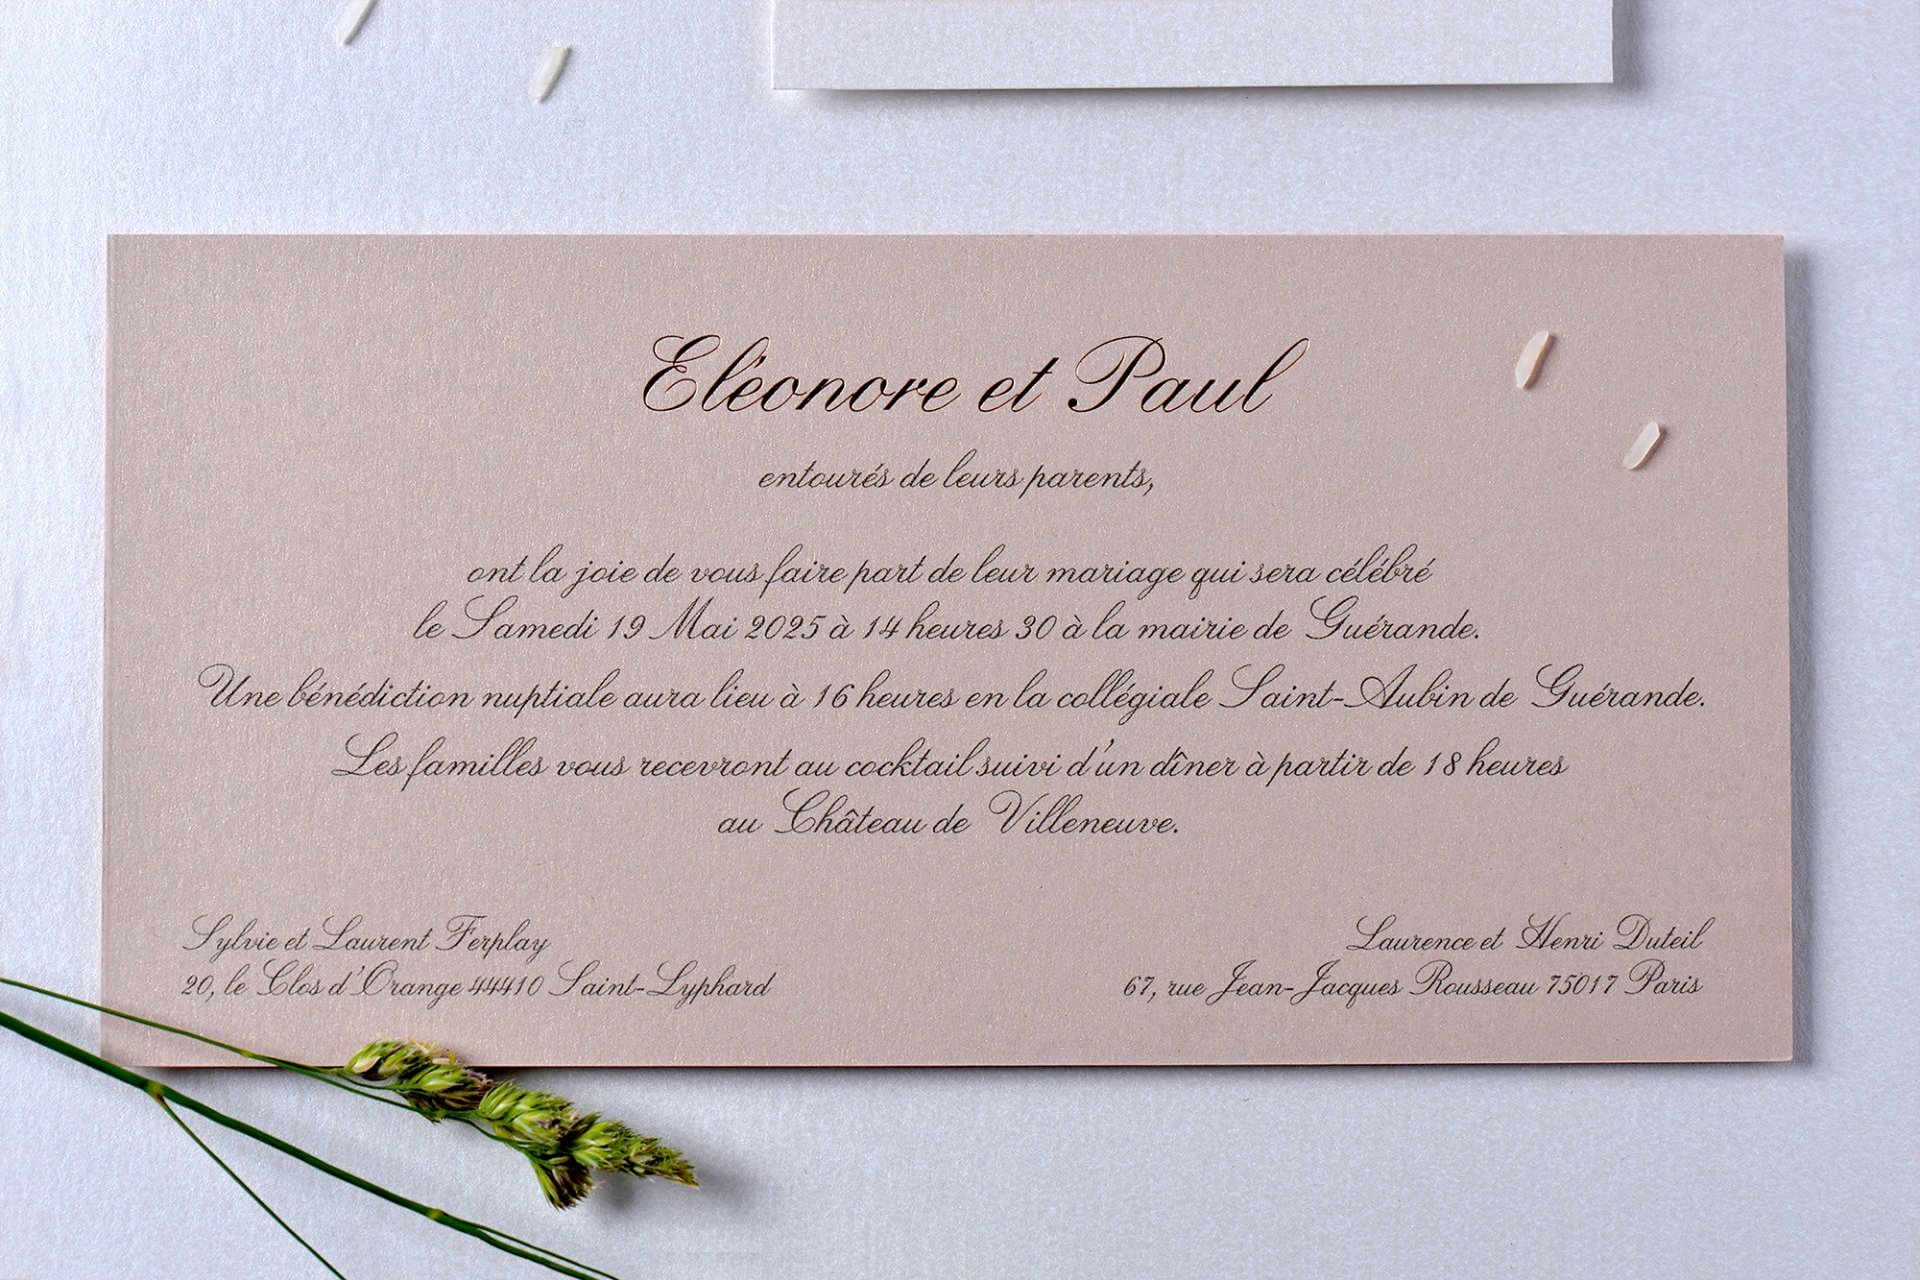 Eléonore et Paul
entourés de leurs parents,
ont la joie de vous faire part de leur mariage qui sera célébré
le Samedi 19 Mai 2025 à 14 heures 30 à la mairie de Guérande.
Une bénédiction nuptiale aura lieu à 16 heures en la collégiale Saint-Aubin de Guérande.
Les familles vous recevront au cocktail suivi d'un dîner à partir de 18 heures
au Château de Villeneuve.
Sylvie et Laurent Ferplay
20, le Clos d'Orange 44410 Saint-Lyphard
Laurence et Henri Duteil
67, rue Jean-Jacques Rousseau 75017 Paris